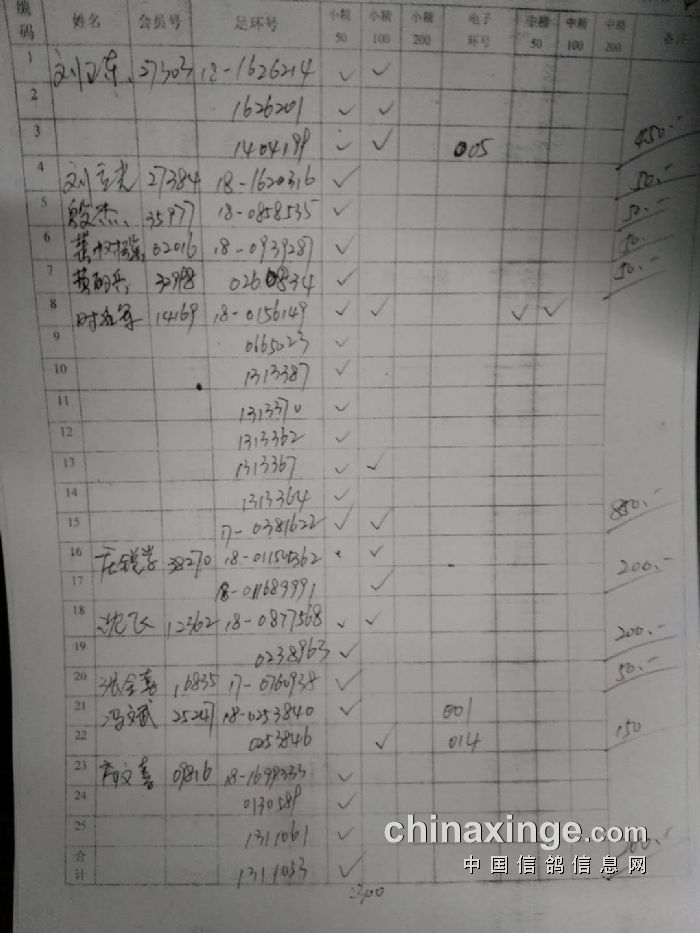 编码 姓名 会员号 足环号 小精50 小精100 小精200 电子环号 中精50 中精100 中精200 备注
1 27303 18-1626214 ✓ ✓
2 1626201 ✓ ✓
3 1404199 ✓ ✓ 005 450.-
4 27384 18-1620316 ✓ 50.-
5 殷杰 35977 18-0858535 ✓ 50.-
6 02016 18-0939287 ✓ 50.
7 0260834 ✓ 50.-
8 14169 18-0156149 ✓ ✓ ✓ ✓
9 0665023 ✓
10 1313387 ✓
11 1313370 ✓
12 1313362 ✓
13 1313367 ✓ ✓
14 1313364 ✓
15 17-0381622 ✓ ✓ 850.-
16 38270 ✓
17 ✓ 200.-
18 沈飞 12362 18-0877568 ✓ ✓
19 0238963 ✓ 200.-
20 16835 17-0760938 ✓ 50.-
21 冯文斌 25247 18-0253840 ✓ 001
22 0253846 ✓ 014 150
23 09816 18-1699333 ✓
24 0130589 ✓
25 1311061 ✓
合计 1311053 ✓
chinaxinge.com
中国信鸽信息网